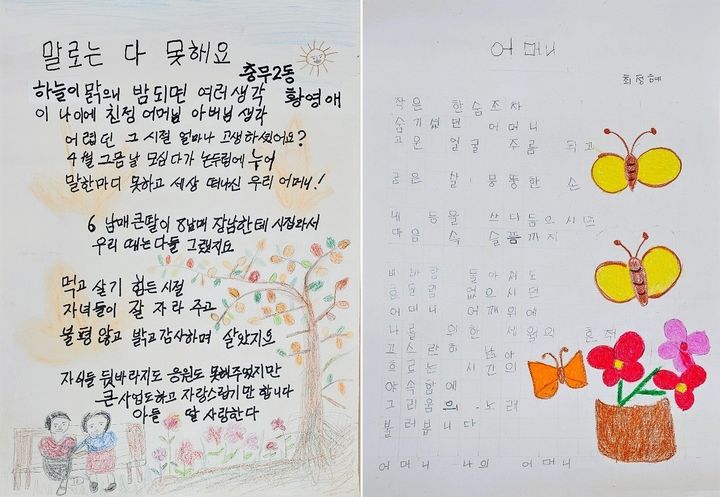 말로는 다 못해요
충무2동
황영애
하늘이 맑으매 밤되면 여러생각
이 나이에 친정 어머님 아버님 생각
어렵던 그 시절 얼마나 고생하셨어요?
4월 그믐날 모심다가 논두렁에 누어
말한마디 못하고 세상 떠나신 우리 어머니!
6남매 큰딸이 8남매 장남한테 시집와서
우리 때는 다들 그랬지요
먹고 살기 힘든 시절
자녀들이 잘 자라 주고
불평않고 밝고 감사하며 살았지요
자식들 뒷바라지도 응원도 못해주었지만
큰사업도하고 자랑스럽기만 합니다
아들 딸 사랑한다
어머니
최정혜
작은 한숨조차
숨기셨던 어머니
고운 얼굴 주름 되고
굽은 살, 뭉뚝한 손
내 등을 쓰다듬으시면
마음 속 슬픔까지
비바람 들이쳐도
흔들림 없으시던
어머니 어깨위에
나를 위한 세월의 흔적
고스란히 남아
흐르는 시간의
야속함에
그리움의 노래
불러봅니다
어머니 나의 어머니